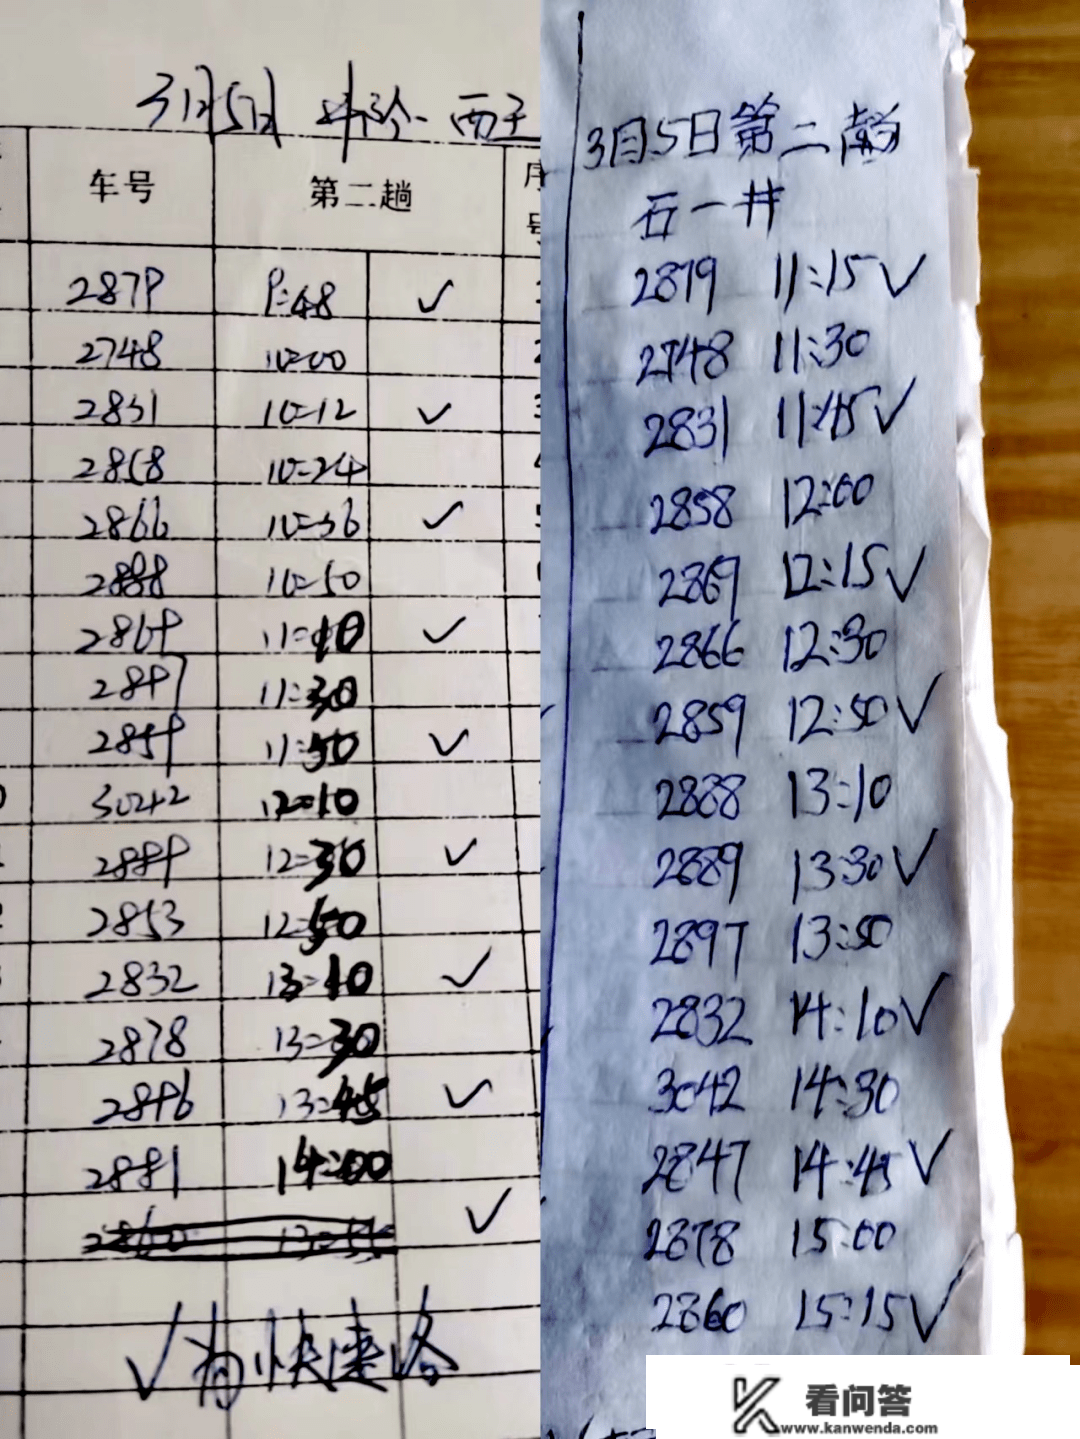 3月5日 井陉一西王
车号 第二趟 序号
2879 9:48 ✓
2748 10:00
2831 10:12 ✓
2858 10:24
2866 10:36 ✓
2888 10:50
2869 11:10 ✓
2897 11:30
2859 11:50 ✓
3042 12:10
2889 12:30 ✓
2853 12:50
2832 13:10 ✓
2878 13:30
2846 13:45 ✓
2881 14:00
✓
✓为快速路
3月5日第二趟
石一井
2879 11:15✓
2748 11:30
2831 11:45✓
2858 12:00
2869 12:15✓
2866 12:30
2859 12:50✓
2888 13:10
2889 13:30✓
2897 13:50
2832 14:10✓
3042 14:30
2847 14:45✓
2878 15:00
2860 15:15✓
看问答
www.kanwenda.com